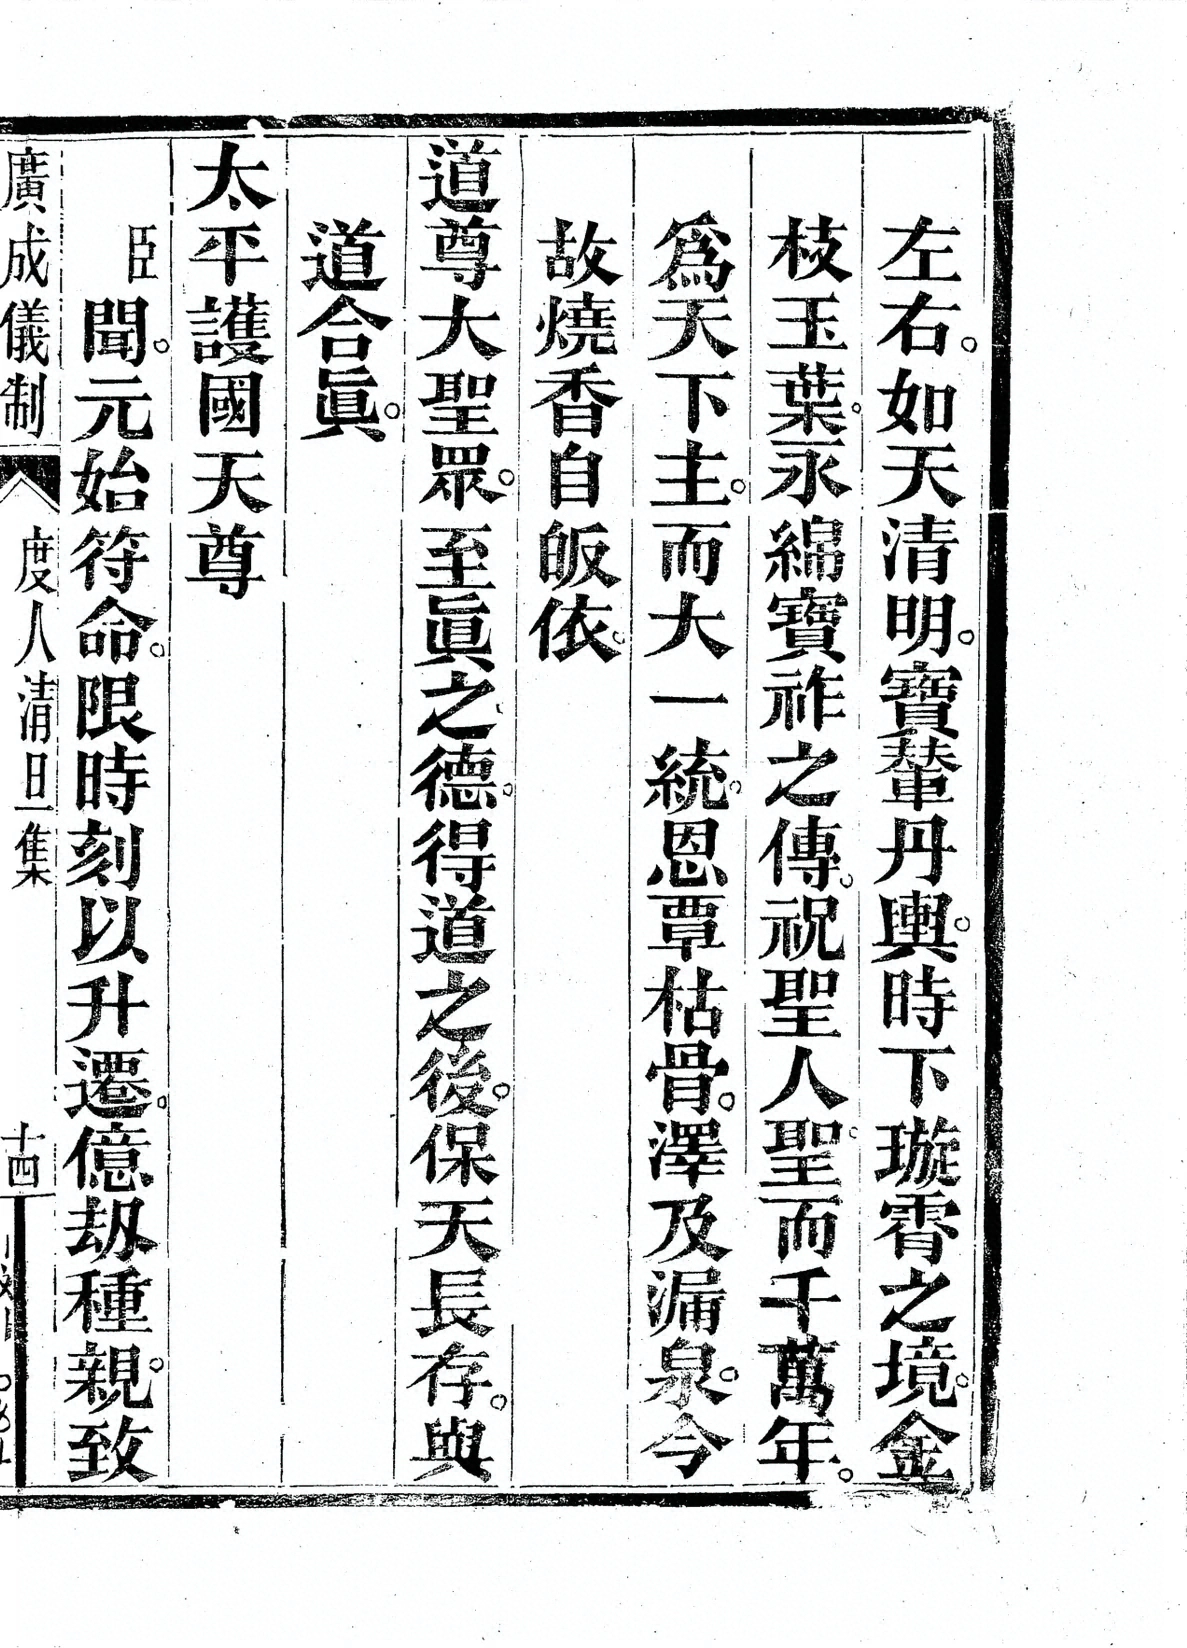 左右。如天清明。寶輦丹輿。時下璇霄之境。金
枝玉葉。永綿寶祚之傳。祝聖人聖。而千萬年。
爲天下主。而大一統。恩覃枯骨。澤及漏泉。今
故燒香自皈依。
道尊大聖眾。至眞之德。得道之後。保天長存。與
道合眞。
太平護國天尊
臣聞。元始符命。限時刻以升遷。億劫種親。致
廣成儀制 度人清旦集 十四